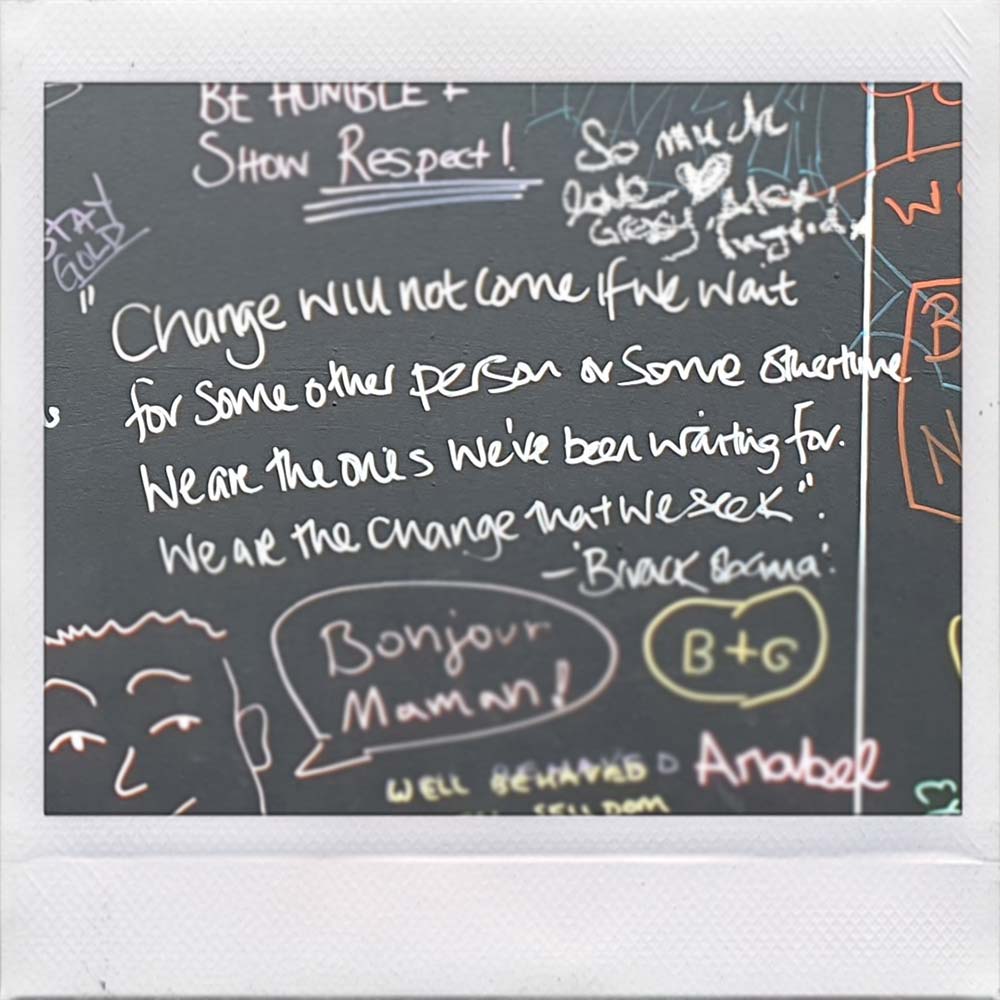 BE HUMBLE +
SHOW RESPECT!
So much
love
Greasy, Alex,
Ingrid x
STAY
GOLD
"Change will not come if we wait
for some other person or some other time
We are the ones we've been waiting for.
We are the change that we seek".
- 'Barack Obama'.
Bonjour
Maman!
B+G
WELL BEHAVED
SELLDOM
Anabel
W
B
N